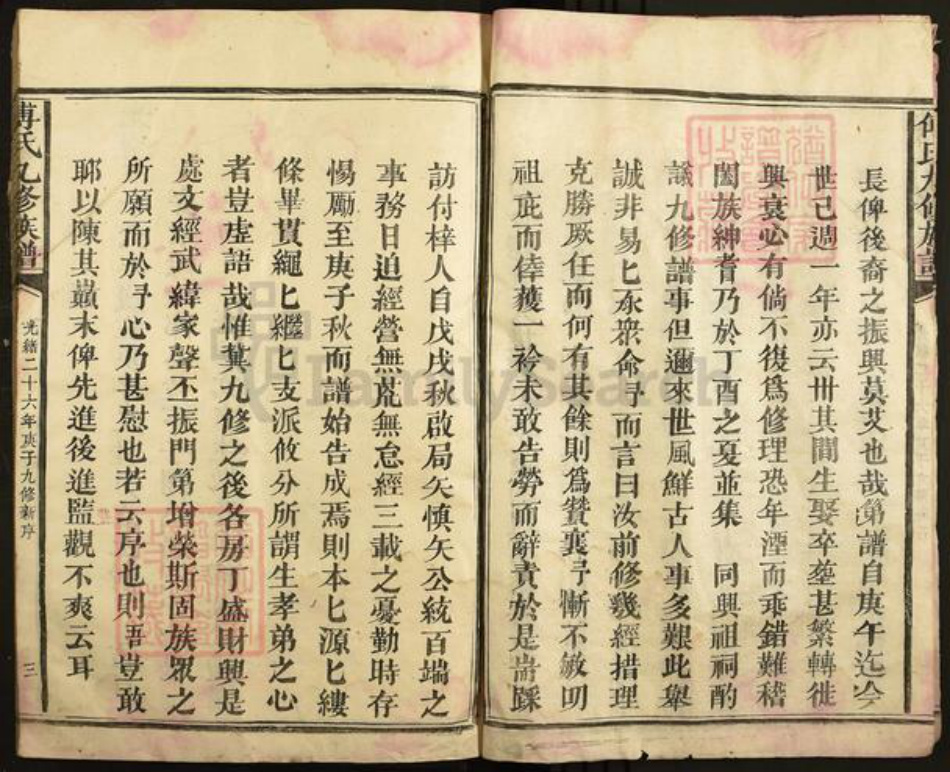 長俾後裔之振興莫艾也哉第譜自庚午迄今
世已週一年亦云卅其間生娶卒塟甚繁轉徙
興衰必有倘不復爲修理恐年湮而乖錯難稽
闔族紳耆乃於丁酉之夏並集 同興祖祠酌
議九修譜事但邇來世風鮮古人事多艱此舉
誠非易匕氶衆命予而言曰汝前修幾經措理
克勝厥任而何有其餘則爲賛襄予慚不敏叨
祖庇而倖䕶一衿未敢告勞而辭責於是耑踩
訪付梓人自戊戌秋啟局矢慎矢公統百端之
事務日迫經營無荒無怠經三載之憂勤時存
惕厲至庚子秋而譜始告成焉則本匕源匕縷
條畢貫繩匕繼匕支派攸分所謂生孝弟之心
者豈虛語哉惟冀九修之後各房丁盛財興是
處文經武緯家聲丕振門第增榮斯固族眾之
所願而於予心乃甚慰也若云序也則吾豈敢
耶以陳其巔末俾先進後進監觀不爽云耳
傅氏九修族譜
光緒二十六年庚子九修新序
三
FamilySearch